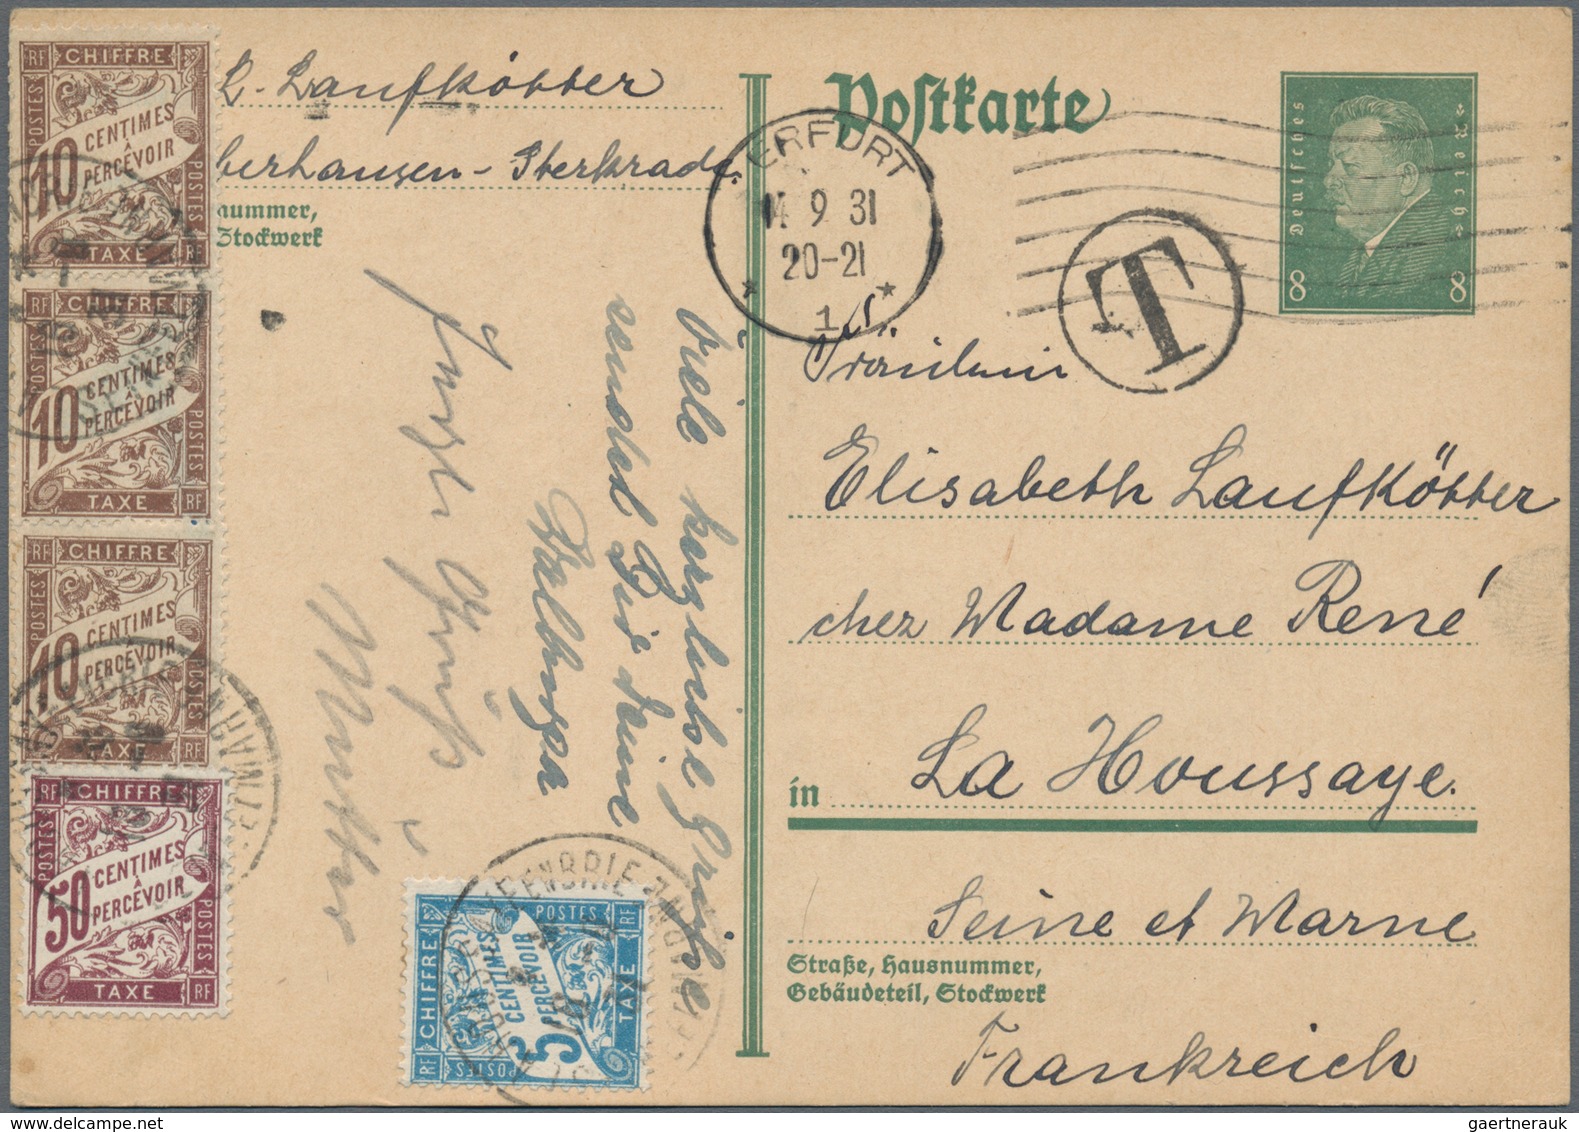 RF CHIFFRE
POSTES
10 CENTIMES
À
PERCEVOIR
POSTES
TAXE RF
10 CENTIMES
À
PERCEVOIR
POSTES
TAXE RF
RF CHIFFRE
POSTES
10 CENTIMES
À
PERCEVOIR
POSTES
TAXE RF
RF CHIFFRE
POSTES
50 CENTIMES
À
PERCEVOIR
POSTES
TAXE RF
L. Laufkötter
berhausen - Sterkrade.
nummer,
Stockwerk
Viele herzliche Grüße
sendet Dir Deine
Walburga
Grüß
Mutter
RF CHIFFRE
POSTES
5 CENTIMES
À
PERCEVOIR
POSTES
TAXE RF
Postkarte
ERFURT
14 9 31
20-21
1
T
Deutsches
Reich
8 8
Fräulein
Elisabeth Laufkötter
chez Madame René
in La Houssaye.
Seine et Marne
Straße, Hausnummer,
Gebäudeteil, Stockwerk
Frankreich
gaertnerauk